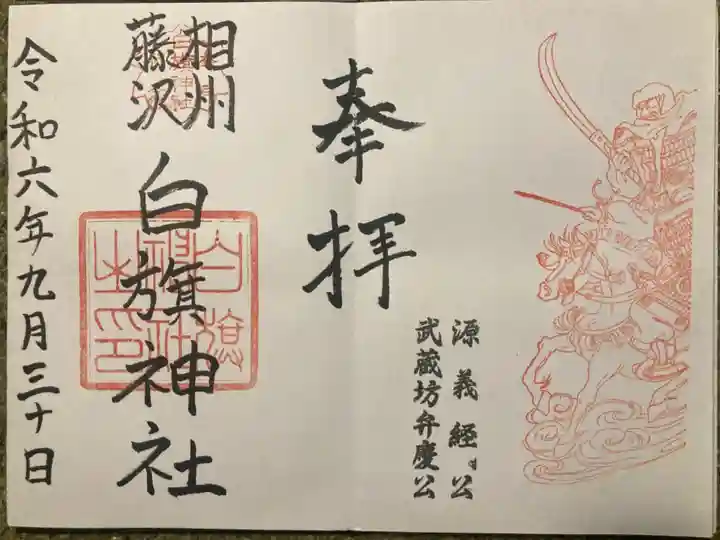 奉拝
源義経公
武蔵坊弁慶公
相州
藤沢
白旗神社
白旗
神社
之印
令和六年九月三十日